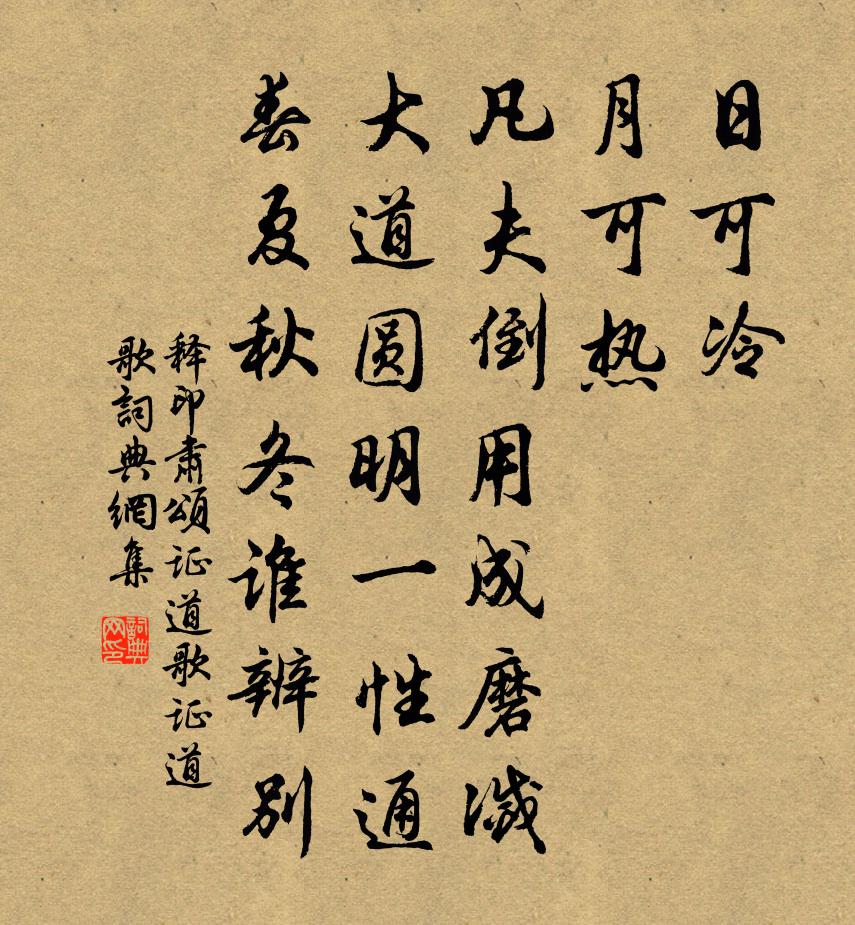 日可冷
月可热
凡夫倒用成磨滅
大道圆明一性通
春夏秋冬谁辨别
释印肃頌证道歌证道
歌詞典網集
詞典
网印